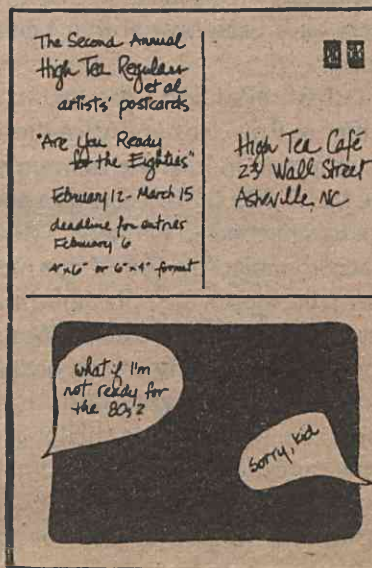 The Second Annual
High Tea Regulars
et al
artists' postcards
"Are You Ready
for the Eighties"
February 12 - March 15
deadline for entries
February 6
4"x6" or 6"x4" format
High Tea Café
Wall Street
Asheville, NC
what if I'm
not ready for
the 80s?
sorry, kid